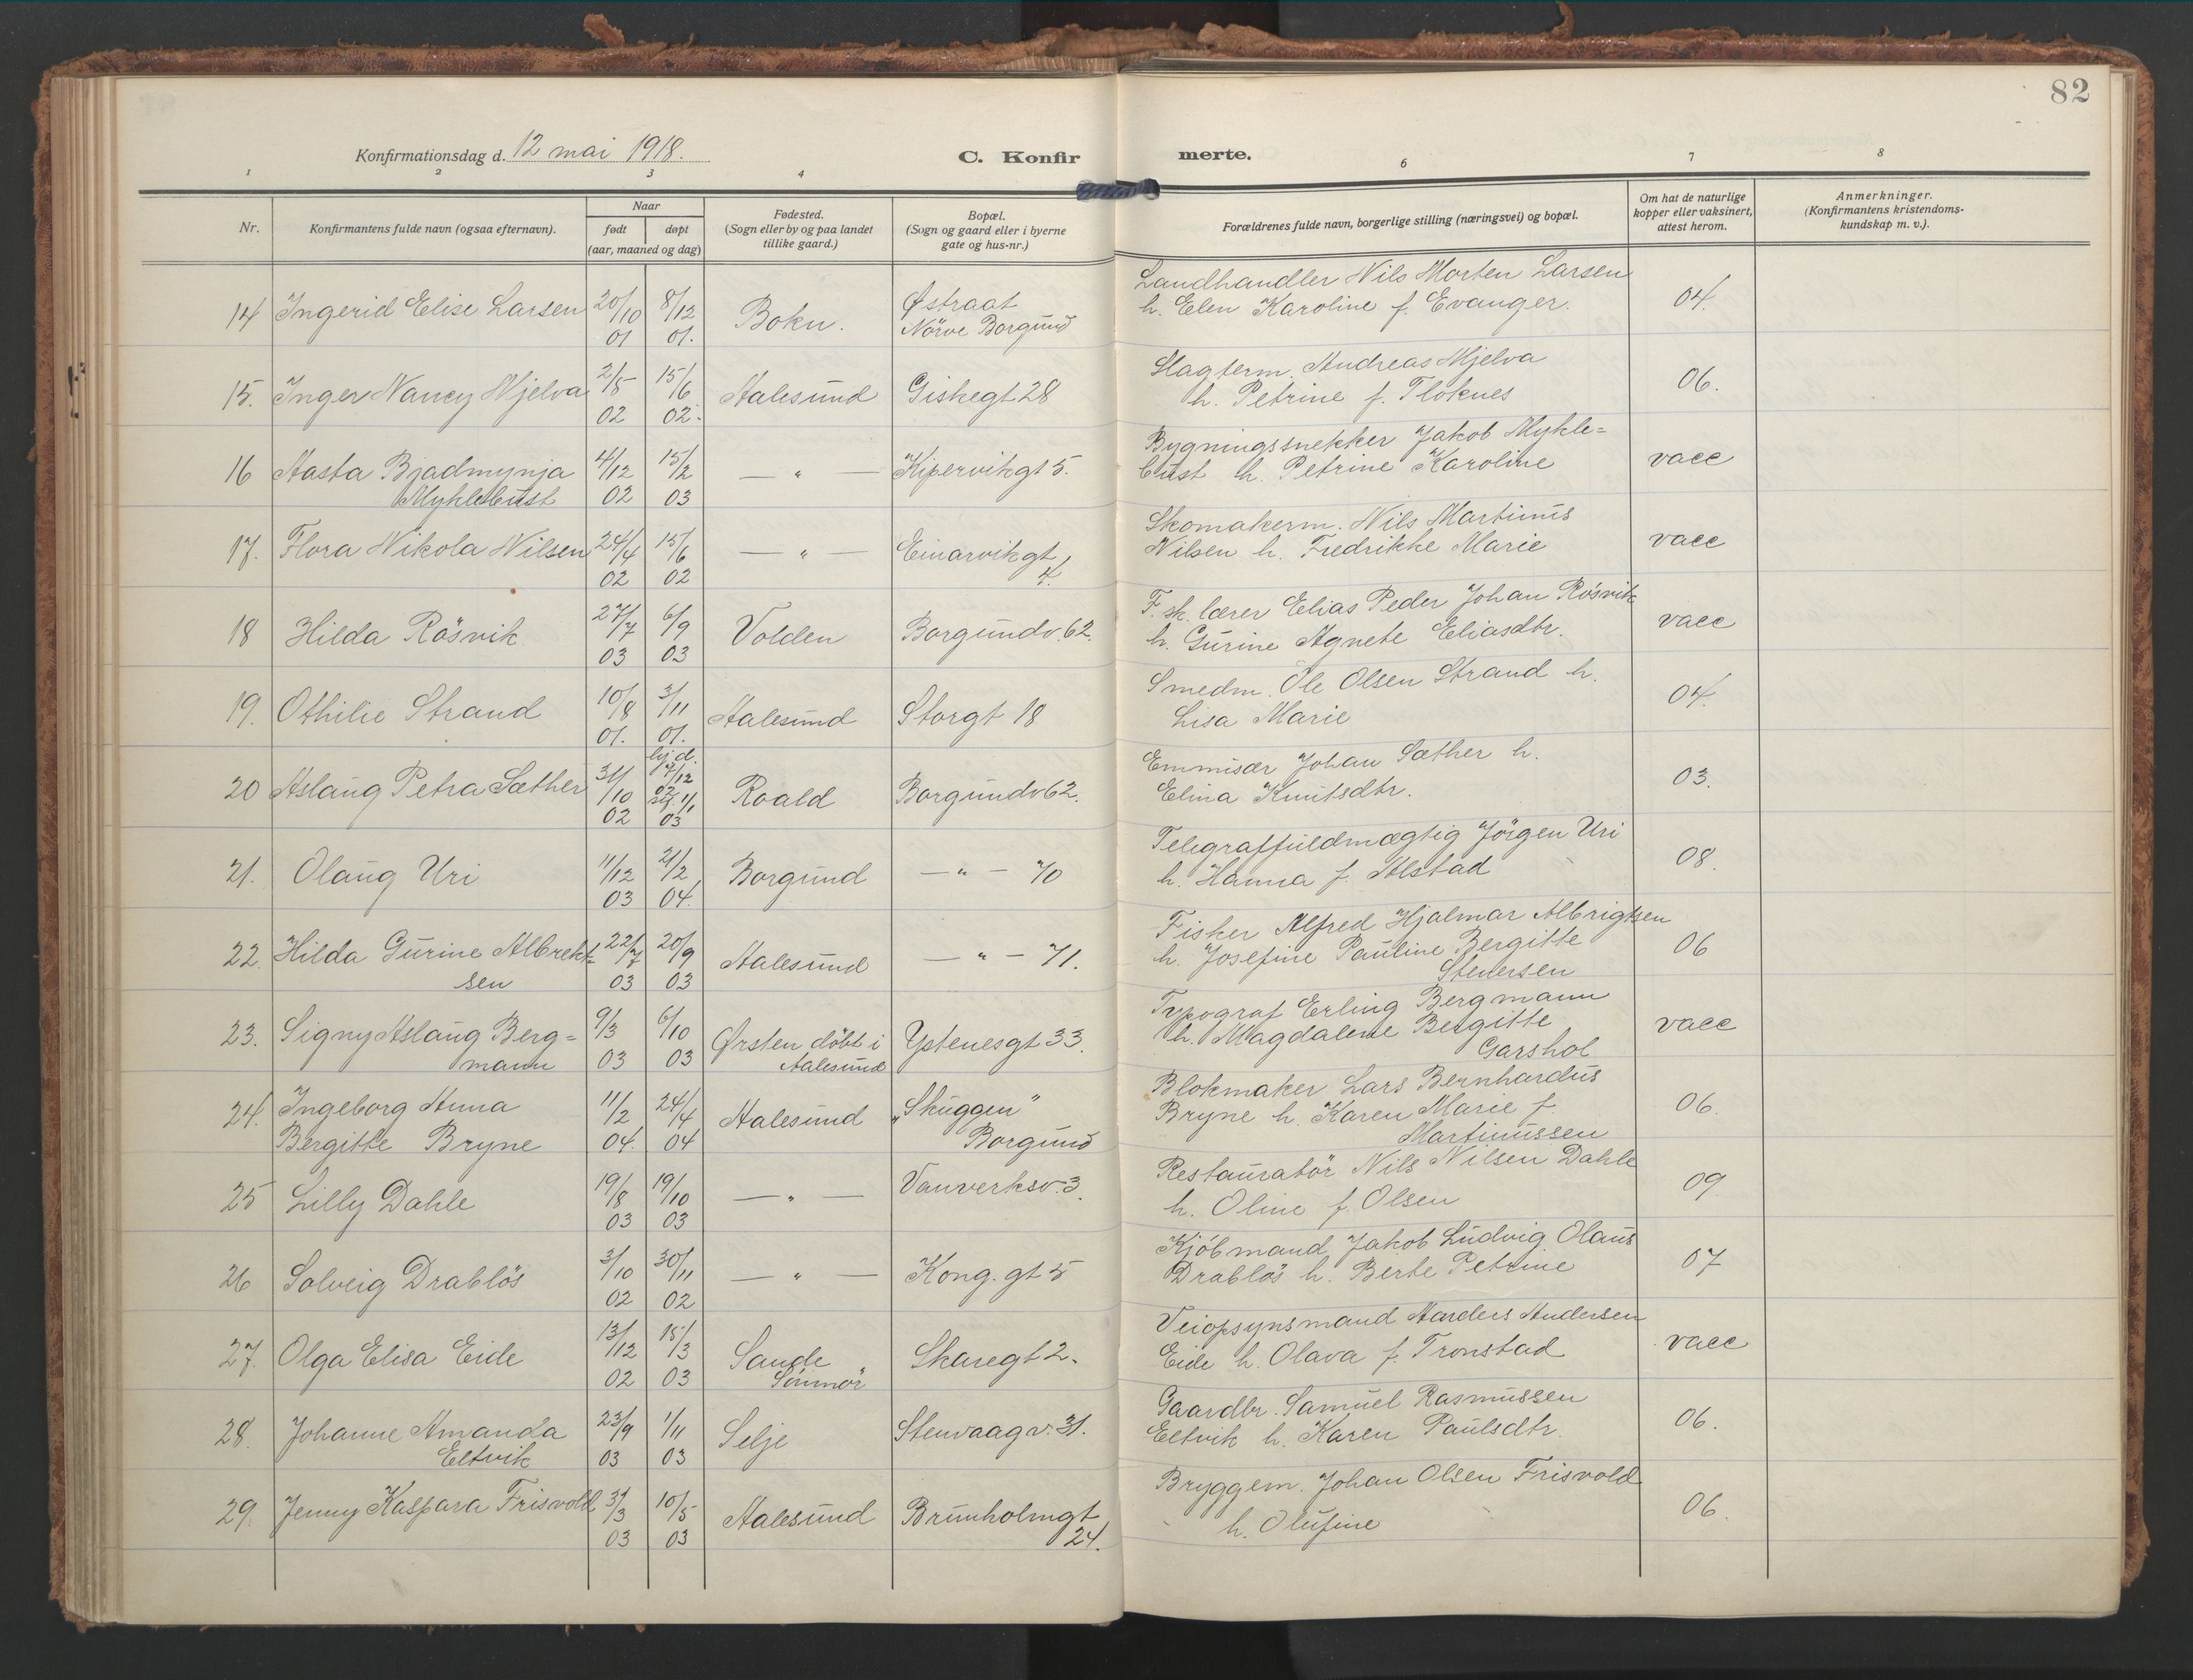 82
Konfirmationsdag d. 12 mai 1918.
C. Konfirmerte.
1 2 3 4 6 7 8
Nr.
Konfirmantens fulde navn (ogsaa efternavn).
Naar
født
døpt
(aar, maaned og dag)
Fødested.
(Sogn eller by og paa landet
tillike gaard.)
Bopæl.
(Sogn og gaard eller i byerne
gate og hus-nr.)
Forældrenes fulde navn, borgerlige stilling (næringsvei) og bopæl.
Om hat de naturlige
kopper eller vaksinert,
attest herom.
Anmerkninger.
(Konfirmantens kristendoms-
kundskap m. v.).
14 Ingerid Elise Larsen 20/10 01 8/12 01. Bokn. Østraat
Nörve Borgund
Landhandler Nils Morten Larsen
h. Elen Karoline f. Evanger. 04.
15. Inger Nancy Mjelva 2/5 02 15/6 02. Aalesund Giskegt 28
Slagterm. Andreas Mjelva
h. Petrine f. Floknes 06.
16 Aasta Bjadmynja
Myklebust 4/12 02 15/2 03 — " — Kipervikgt 5.
Bygningssnekker Jakob Mykle=
bust h. Petrine Karoline vacc
17. Flora Nikola Nilsen 24/4 02 15/6 02 — " — Einarvikgt
4.
Skomakerm. Nils Martinus
Nilsen h. Fredrikke Marie vacc
18 Hilda Rösvik 27/7 03 6/9 03 Volden Borgundv. 62.
F. sk. lærer Elias Peder Johan Rösvik
h. Gurine Agnete Eliasdtr. vacc
19. Othilie Strand 10/8 01. 3/11 01. Aalesund Storgt 18
Smedm. Ole Olsen Strand h.
Lisa Marie 04.
20 Aslaug Petra Sæther 31/10 02 hj. d. 7/12 02 stf. 1/1 03 Roald Borgundv 62.
Emmisær Johan Sæther h.
Elina Knutsdtr. 03.
21. Olaug Uri 11/12 03 21/2 04. Borgund — " — 70
Telegraffuldmægtig Jörgen Uri
h. Hanna f. Alstad 08.
22. Hilda Gurine Albrekt=
sen 22/7 03 20/9 03 Aalesund — " — 71.
Fisker Alfred Hjalmar Albrigtsen
h. Josefine Pauline Bergitte
Stenersen 06
23. Signy Aslaug Berg=
mann 9/3 03 6/10 03 Ørsten döbt i
Aalesund Ystenesgt 33.
Typograf Erling Bergmann
h. Magdalene Bergitte
Garshol vacc
24. Ingeborg Anna
Bergitte Bryne 11/2 04. 24/4 04 Aalesund „Skuggen"
Borgund
Blokmaker Lars Bernhardus
Bryne h. Karen Marie f
Martinussen 06.
25 Lilly Dahle 19/8 03 19/10 03 — " — Vanverksv. 3.
Restauratör Nils Nilsen Dahle
h. Oline f. Olsen 09.
26 Solveig Drablös 3/10 02 30/11 02 — " — Kong. gt 5
Kjöbmand Jakob Ludvig Olaus
Drablös h. Berte Petrine 07
27. Olga Elisa Eide 13/12 02 15/3 03 Sande
Sönmör Skaregt 2.
Veiopsynsmand Anders Andersen
Eide h. Olava f. Tronstad vacc
28. Johanne Amanda
Eltvik 23/9 03 1/11 03 Selje Stenvaagv. 31.
Gaardbr. Samuel Rasmussen
Eltvik h. Karen Paulsdtr. 06.
29. Jenny Kaspara Frisvold 31/3 03 10/5 03 Aalesund Brunholmgt
24.
Bryggem. Johan Olsen Frisvold
h. Olufine 06.